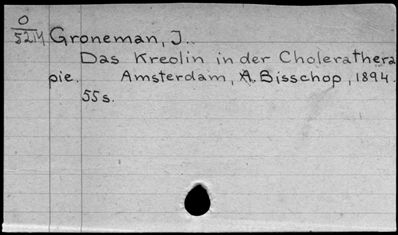 O
52M Groneman, J.
Das Kreolin in der Cholerathera
pie. Amsterdam, A. Bisschop, 1894.
55 s.